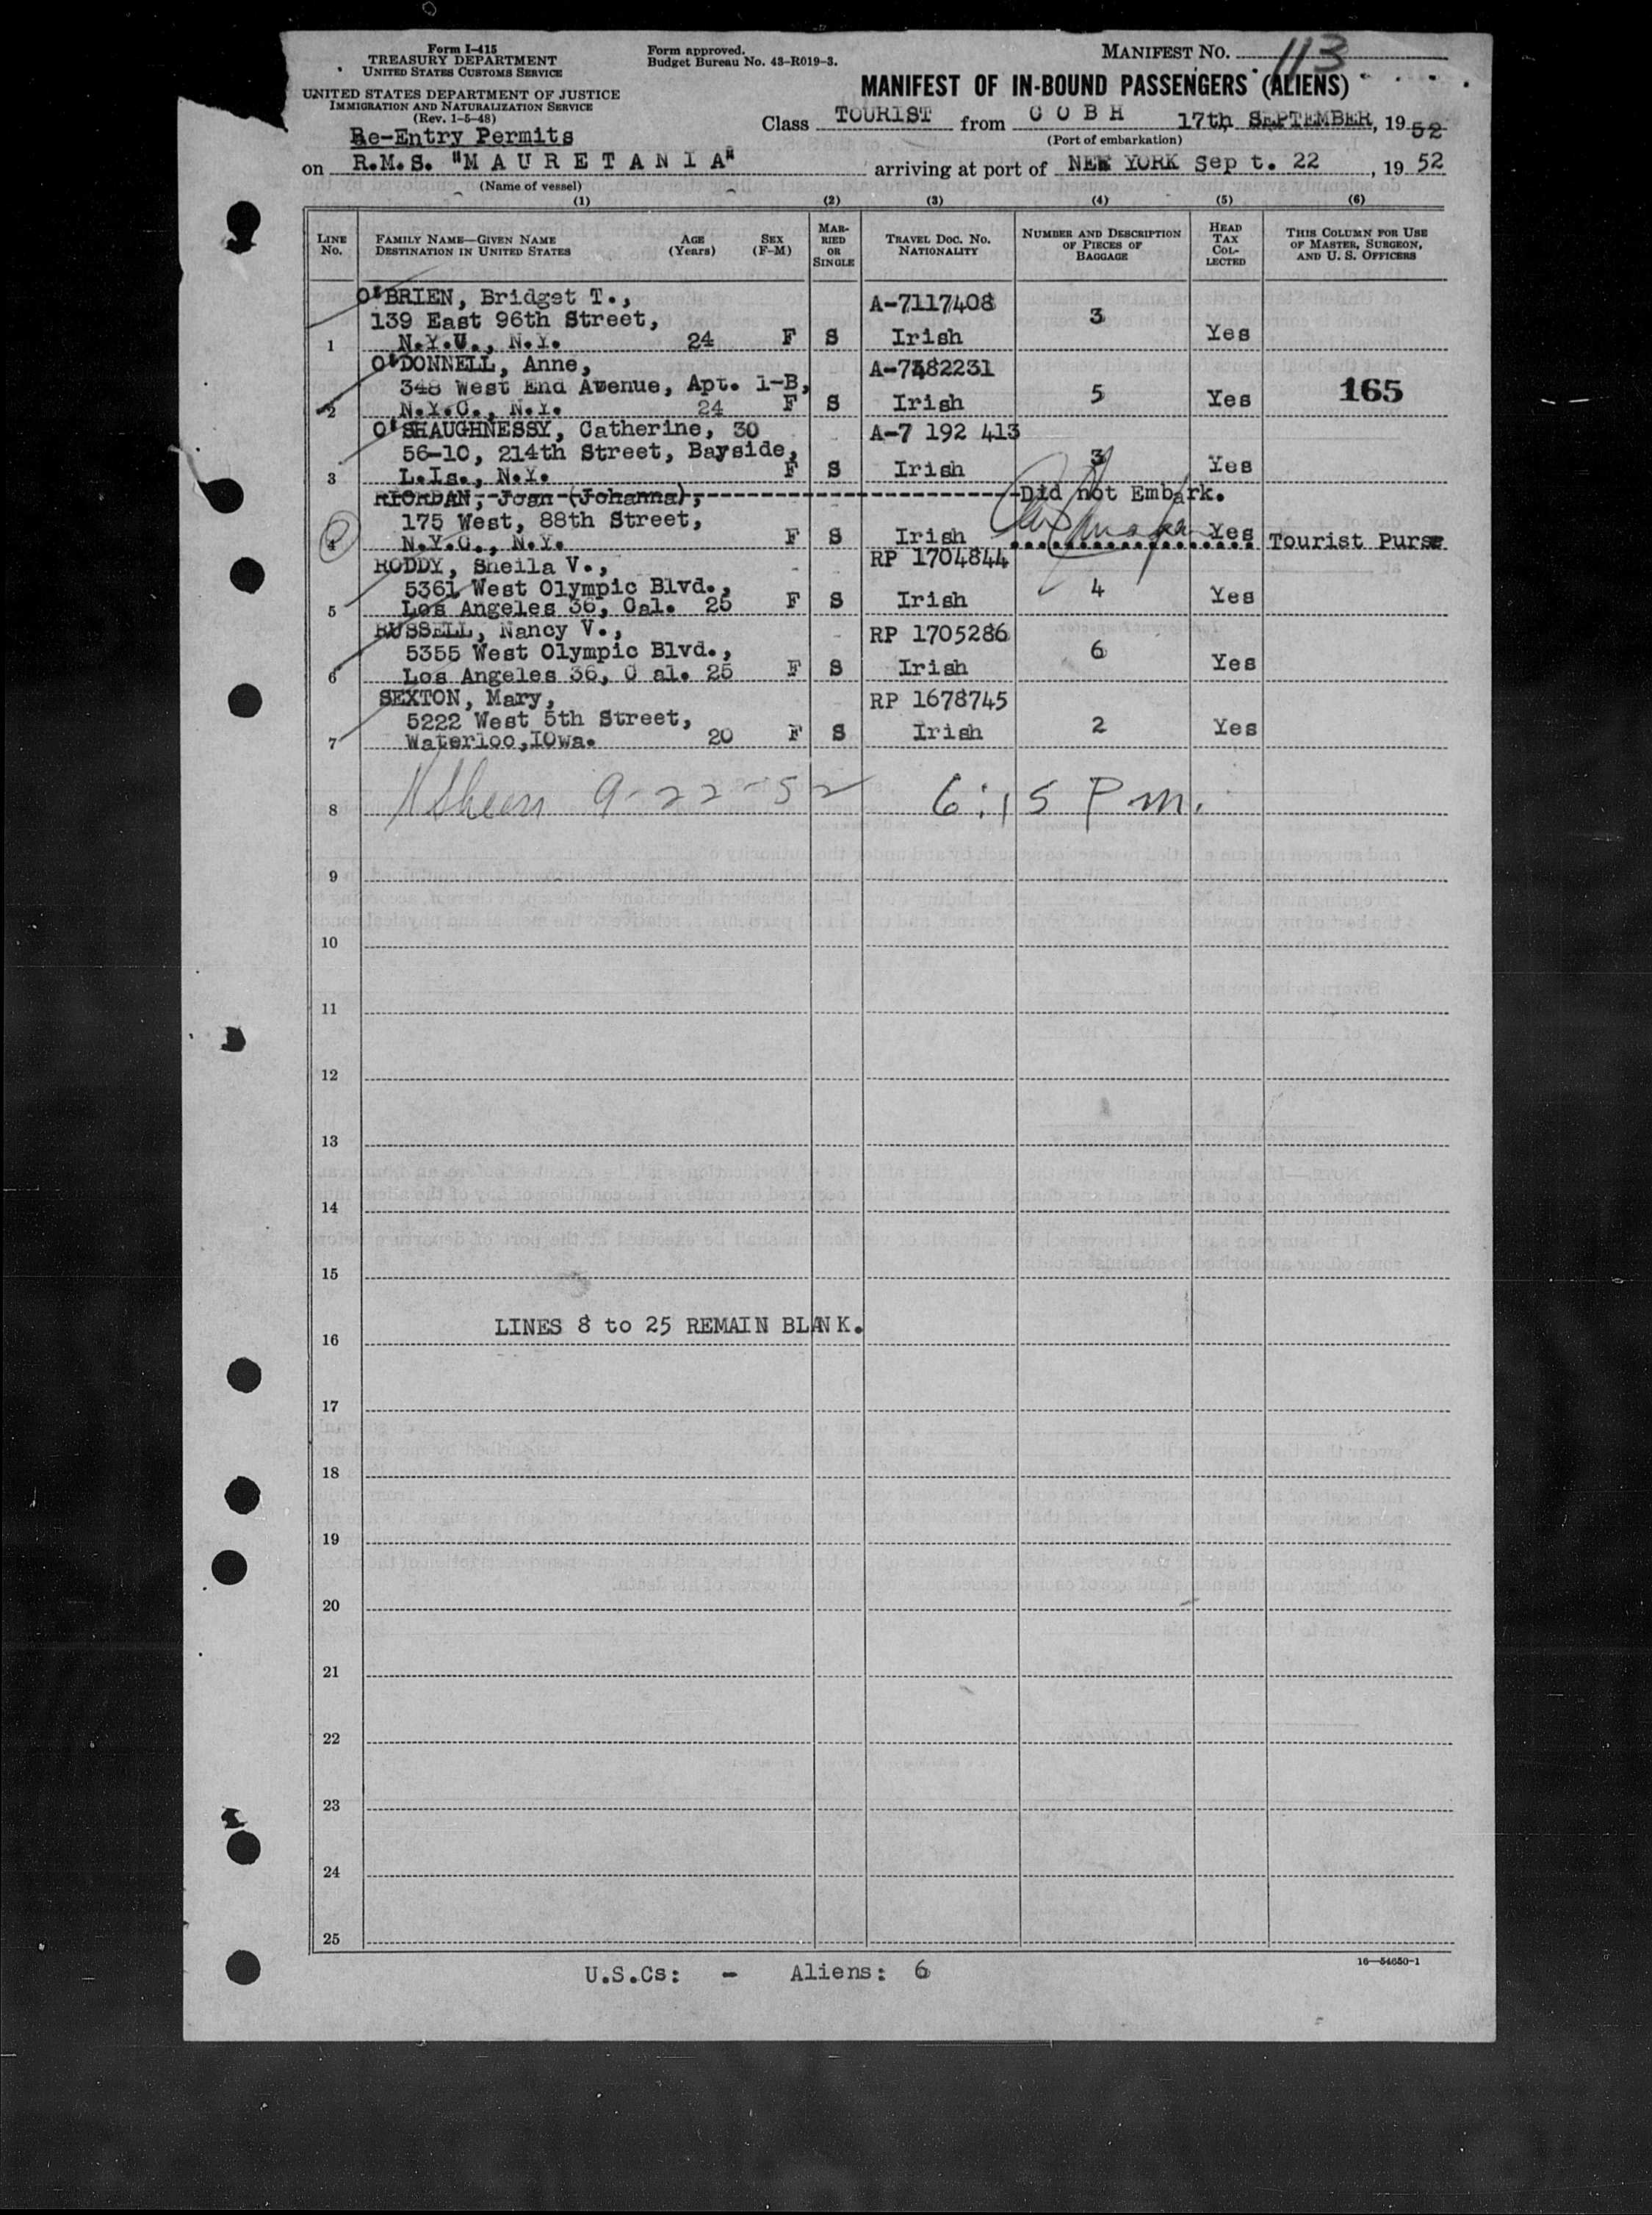 Form I-415
TREASURY DEPARTMENT
UNITED STATES CUSTOMS SERVICE
UNITED STATES DEPARTMENT OF JUSTICE
IMMIGRATION AND NATURALIZATION SERVICE
(Rev. 1-5-48)
Re-Entry Permits
Form approved.
Budget Bureau No. 43-R019-3.
MANIFEST NO. 113
MANIFEST OF IN-BOUND PASSENGERS (ALIENS)
Class TOURIST from COBH 17th SEPTEMBER, 1952
(Port of embarkation)
on R.M.S. "MAURETANIA" arriving at port of NEW YORK Sep t. 22, 19 52
(Name of vessel)
(1) (2) (3) (4) (5) (6)
LINE No. FAMILY NAME—GIVEN NAME DESTINATION IN UNITED STATES AGE (Years) SEX (F-M) MARRIED OR SINGLE TRAVEL DOC. NO. NATIONALITY NUMBER AND DESCRIPTION OF PIECES OF BAGGAGE HEAD TAX COLLECTED THIS COLUMN FOR USE OF MASTER, SURGEON, AND U. S. OFFICERS
O'BRIEN, Bridget T., A-7117408
139 East 96th Street, 3
1 N.Y.U., N.Y. 24 F S Irish Yes
O'DONNELL, Anne, A-7382231
348 West End Avenue, Apt. 1-B, 5 165
2 N.Y.C., N.Y. 24 F S Irish Yes
O'SHAUGHNESSY, Catherine, 30 A-7 192 413
56-10, 214th Street, Bayside, 3
3 L.Is., N.Y. F S Irish Yes
RIORDAN, Joan (Johanna), Did not Embark.
175 West, 88th Street,
4 N.Y.C., N.Y. F S Irish Yes Tourist Purse
RODDY, Sheila V., RP 1704844
5361 West Olympic Blvd., 4
5 Los Angeles 36, Cal. 25 F S Irish Yes
RUSSELL, Nancy V., RP 1705286
5355 West Olympic Blvd., 6
6 Los Angeles 36, C al. 25 F S Irish Yes
SEXTON, Mary, RP 1678745
5222 West 5th Street, 2
7 Waterloo, IOwa. 20 F S Irish Yes
8 9-22-52 6:15 Pm.
9
10
11
12
13
14
15
LINES 8 to 25 REMAIN BLANK.
16
17
18
19
20
21
22
23
24
25
16—54650-1
U.S.Cs: - Aliens: 6